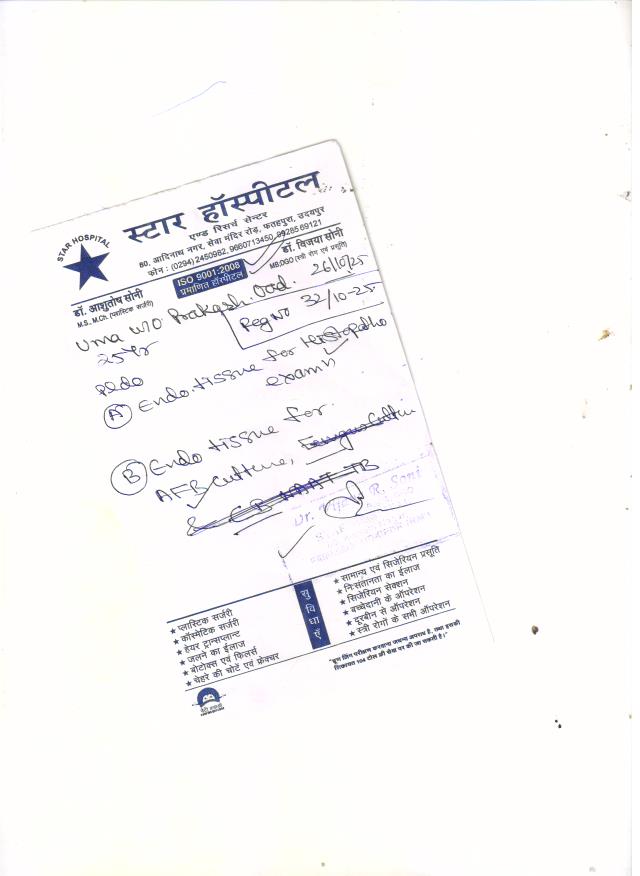 STAR HOSPITAL
स्टार हॉस्पीटल
एण्ड रिसर्च सेन्टर
60, आदिनाथ नगर, सेवा मंदिर रोड़, फतहपुरा, उदयपुर
फोन : (0294) 2450982, 9660713450, 99285 69121
ISO 9001:2008
प्रमाणित हॉस्पीटल
डॉ. आशुतोष सोनी
M.S., M.Ch. (प्लास्टिक सर्जरी)
डॉ. विजया सोनी
MB,DGO (स्त्री रोग एवं प्रसूति)
26/10/25
Uma w/o Prakash
25 yr
Reg No 32/10-25
Pl do
(A) Endo. tissue for Histopatho
examn
(B) Endo tissue for.
AFB Culture,
&
TB
Dr. R. Soni
★ प्लास्टिक सर्जरी
★ कॉस्मेटिक सर्जरी
★ हेयर ट्रान्सप्लान्ट
★ जलने का ईलाज
★ बोटोक्स एवं फिलर्स
★ चेहरे की चोटें एवं फ्रेक्चर
सुविधाएँ
★ सामान्य एवं सिजेरियन प्रसूति
★ निःसंतानता का ईलाज
★ सिजेरियन सेक्शन
★ बच्चेदानी के ऑपरेशन
★ दूरबीन से ऑपरेशन
★ स्त्री रोगों के सभी ऑपरेशन
"भ्रूण लिंग परीक्षण करवाना जघन्य अपराध है, तथा इसकी
शिकायत 104 टोल फ्री सेवा पर की जा सकती है।"